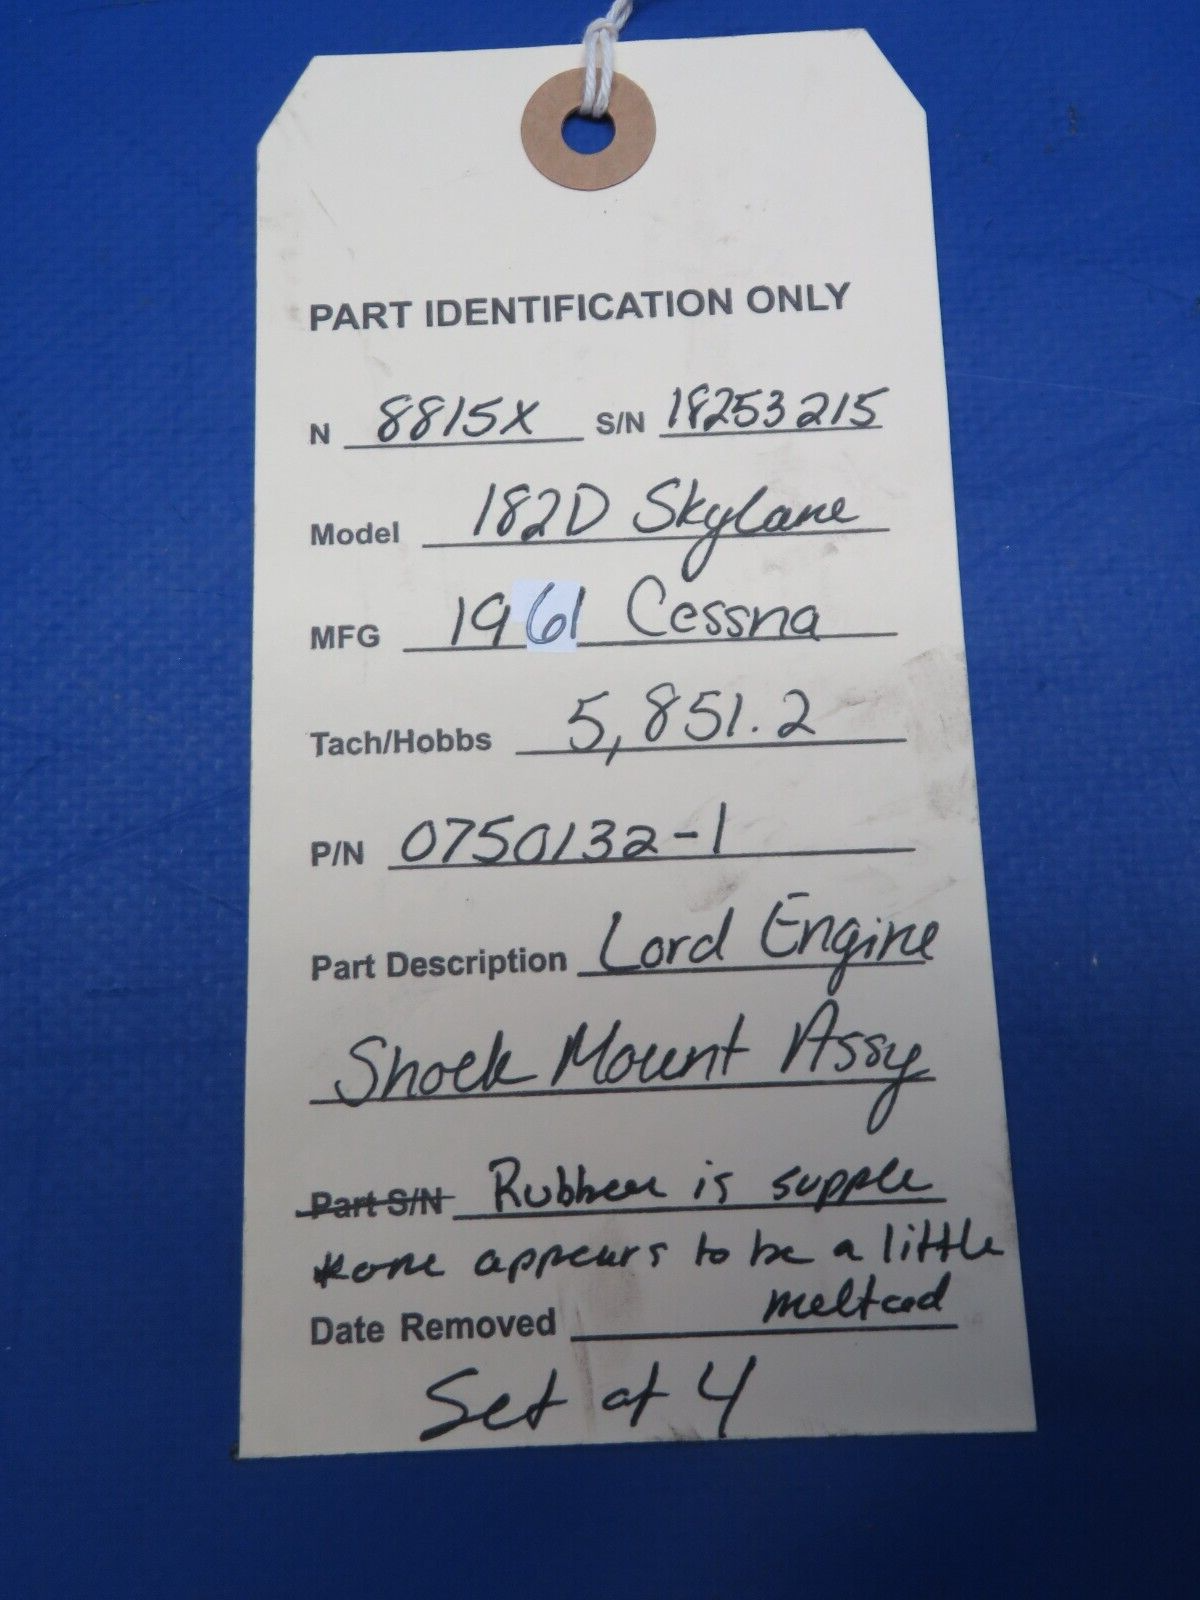 PART IDENTIFICATION ONLY
N 8815X S/N 18253215
Model 182D Skylane
MFG 1961 Cessna
Tach/Hobbs 5,851.2
P/N 0750132-1
Part Description Lord Engine
Shock Mount Assy
Part S/N Rubber is supple
*one appears to be a little
melted
Date Removed
Set of 4